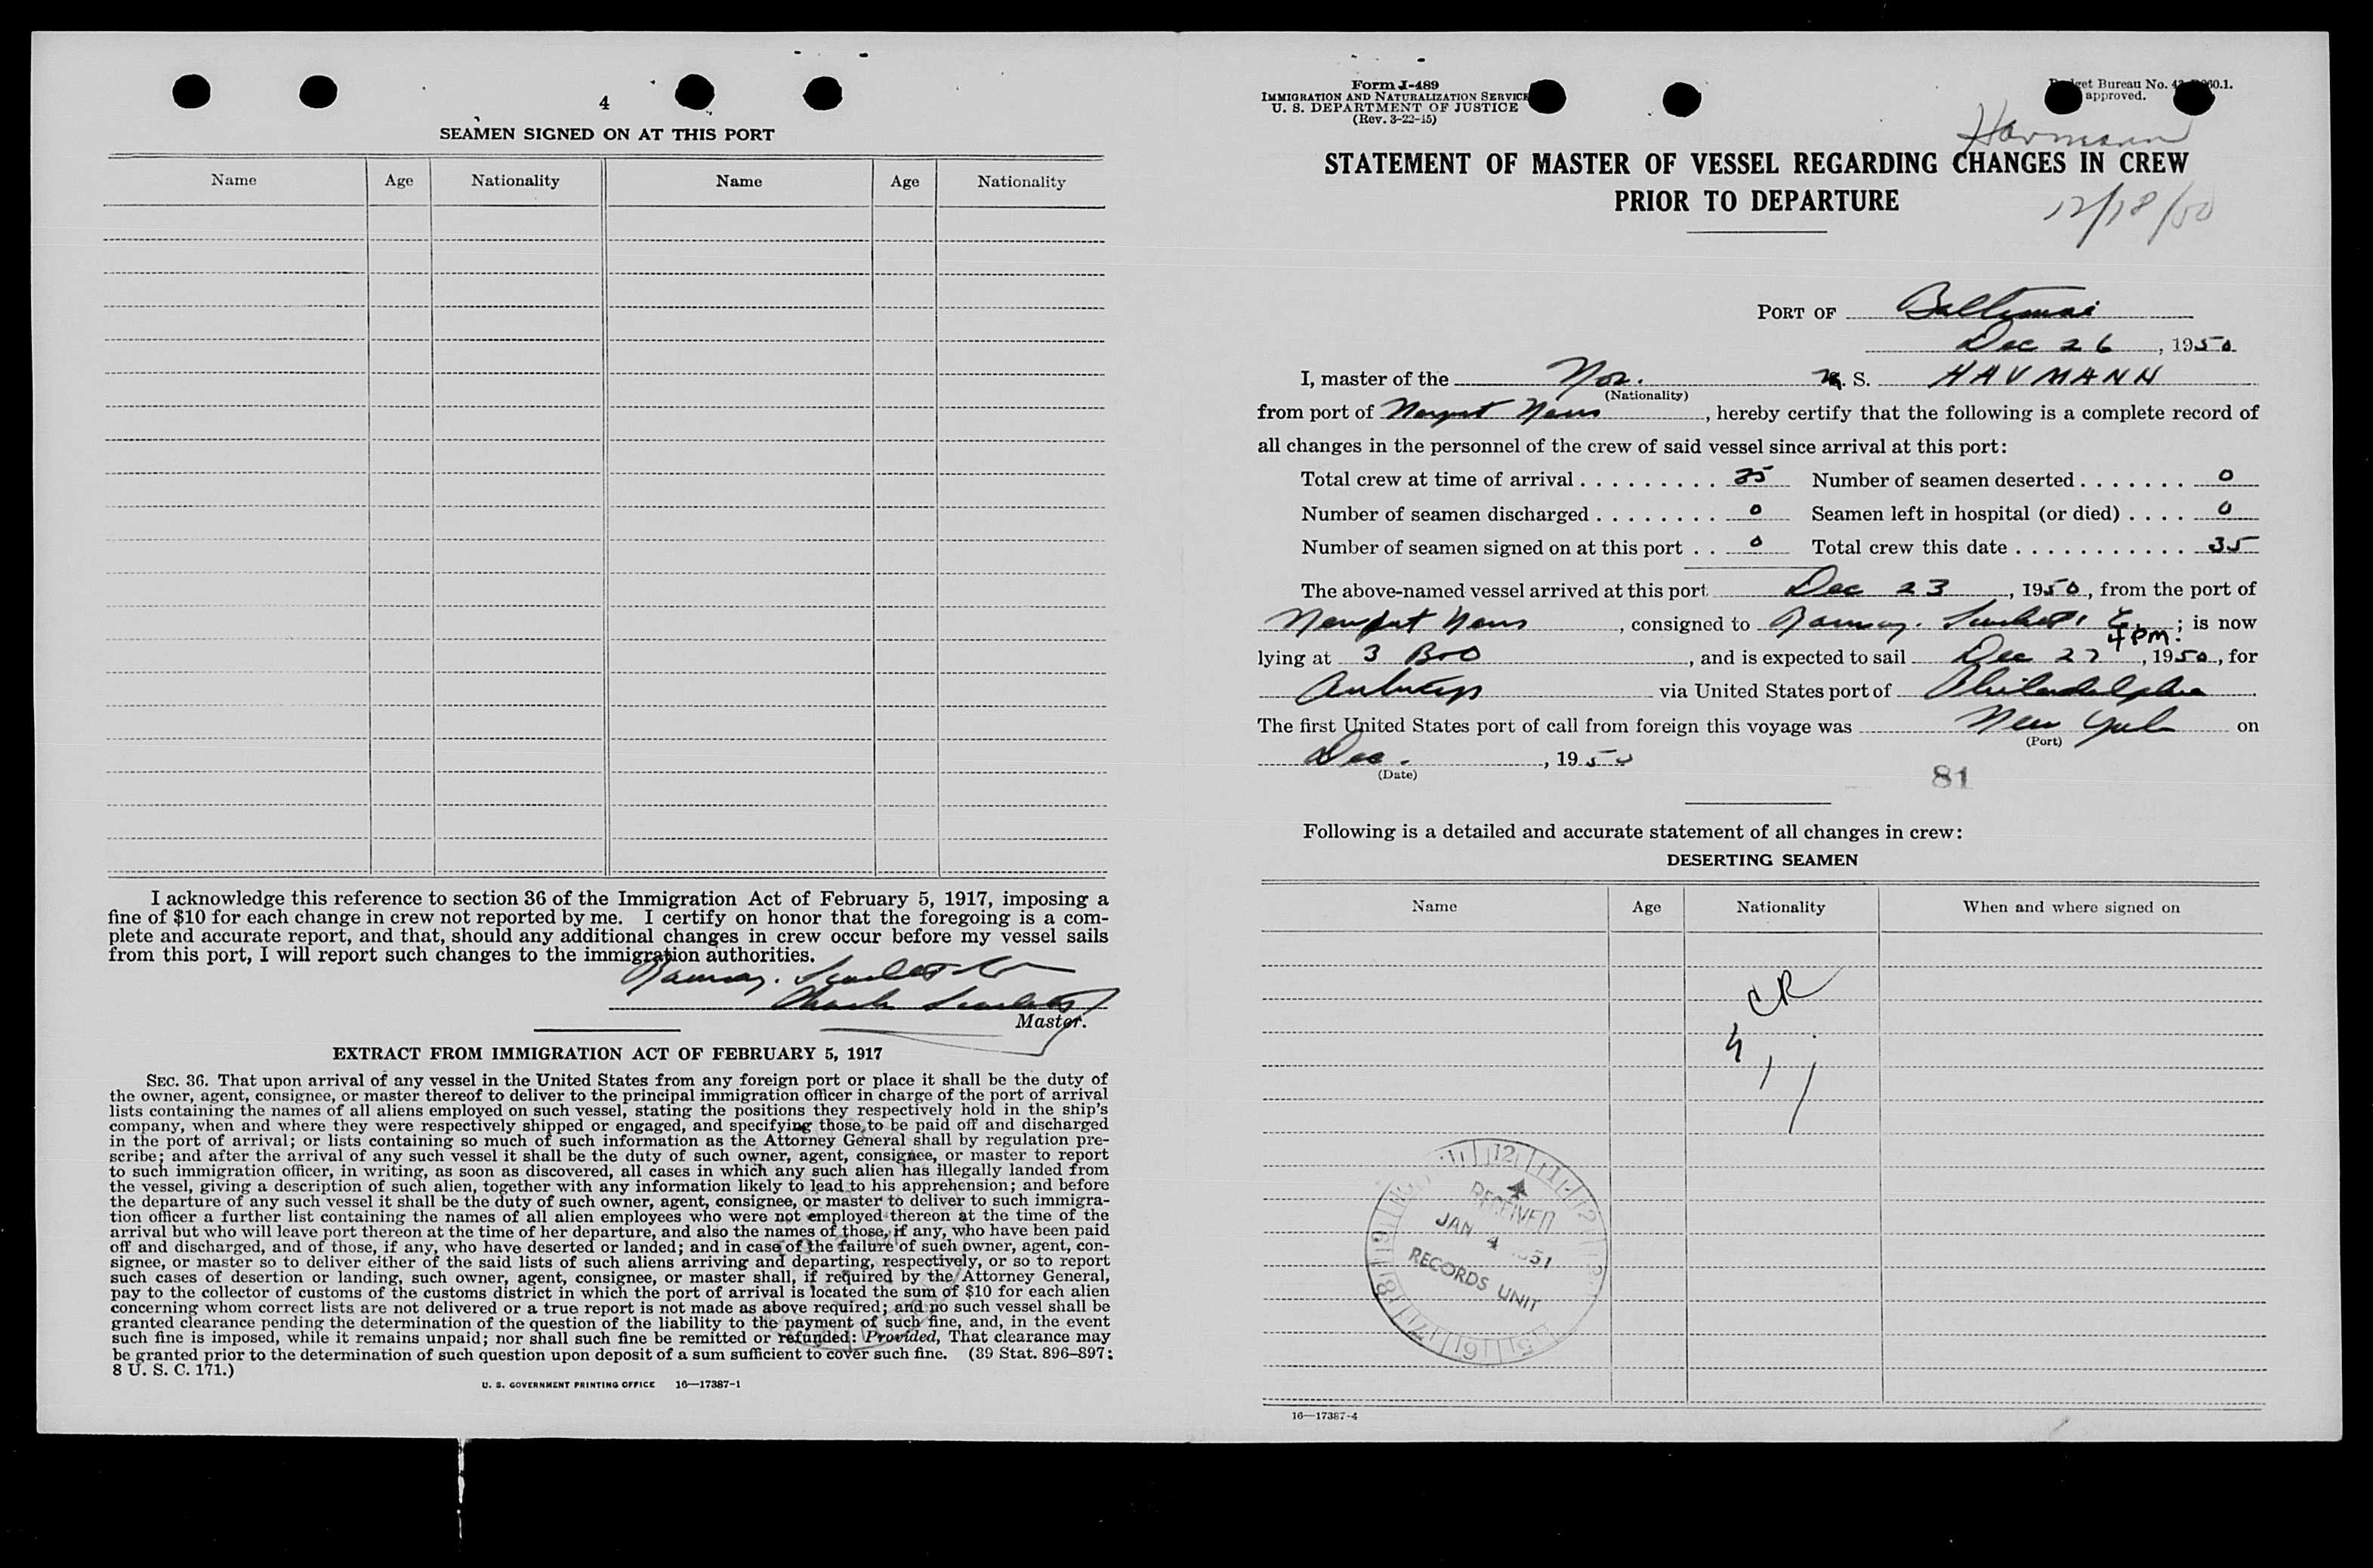 4
SEAMEN SIGNED ON AT THIS PORT
Name Age Nationality Name Age Nationality
I acknowledge this reference to section 36 of the Immigration Act of February 5, 1917, imposing a
fine of $10 for each change in crew not reported by me. I certify on honor that the foregoing is a com-
plete and accurate report, and that, should any additional changes in crew occur before my vessel sails
from this port, I will report such changes to the immigration authorities.
Ramsay. Scarlett & Co
Charles Scarlett
Master.
EXTRACT FROM IMMIGRATION ACT OF FEBRUARY 5, 1917
SEC. 36. That upon arrival of any vessel in the United States from any foreign port or place it shall be the duty of
the owner, agent, consignee, or master thereof to deliver to the principal immigration officer in charge of the port of arrival
lists containing the names of all aliens employed on such vessel, stating the positions they respectively hold in the ship's
company, when and where they were respectively shipped or engaged, and specifying those to be paid off and discharged
in the port of arrival; or lists containing so much of such information as the Attorney General shall by regulation pre-
scribe; and after the arrival of any such vessel it shall be the duty of such owner, agent, consignee, or master to report
to such immigration officer, in writing, as soon as discovered, all cases in which any such alien has illegally landed from
the vessel, giving a description of such alien, together with any information likely to lead to his apprehension; and before
the departure of any such vessel it shall be the duty of such owner, agent, consignee, or master to deliver to such immigra-
tion officer a further list containing the names of all alien employees who were not employed thereon at the time of the
arrival but who will leave port thereon at the time of her departure, and also the names of those, if any, who have been paid
off and discharged, and of those, if any, who have deserted or landed; and in case of the failure of such owner, agent, con-
signee, or master so to deliver either of the said lists of such aliens arriving and departing, respectively, or so to report
such cases of desertion or landing, such owner, agent, consignee, or master shall, if required by the Attorney General,
pay to the collector of customs of the customs district in which the port of arrival is located the sum of $10 for each alien
concerning whom correct lists are not delivered or a true report is not made as above required; and no such vessel shall be
granted clearance pending the determination of the question of the liability to the payment of such fine, and, in the event
such fine is imposed, while it remains unpaid; nor shall such fine be remitted or refunded: Provided, That clearance may
be granted prior to the determination of such question upon deposit of a sum sufficient to cover such fine. (39 Stat. 896-897;
8 U. S. C. 171.)
U. S. GOVERNMENT PRINTING OFFICE 16—17387-1
Form I-489
IMMIGRATION AND NATURALIZATION SERVICE
U. S. DEPARTMENT OF JUSTICE
(Rev. 3-22-45)
Budget Bureau No.
approved.
STATEMENT OF MASTER OF VESSEL REGARDING CHANGES IN CREW
PRIOR TO DEPARTURE
12/18/50
PORT OF Baltimore
Dec 26, 1950
I, master of the Nor. S. HAVMANN
(Nationality)
from port of Newport News, hereby certify that the following is a complete record of
all changes in the personnel of the crew of said vessel since arrival at this port:
Total crew at time of arrival 35 Number of seamen deserted 0
Number of seamen discharged 0 Seamen left in hospital (or died) 0
Number of seamen signed on at this port 0 Total crew this date 35
The above-named vessel arrived at this port Dec 23, 1950, from the port of
Newport News, consigned to Ramsay. Scarlett & Co; is now
4 PM.
lying at 3 B&O, and is expected to sail Dec 27, 1950, for
Antwerp via United States port of Philadelphia
The first United States port of call from foreign this voyage was New York on
(Port)
Dec., 1950
(Date)
81
Following is a detailed and accurate statement of all changes in crew:
DESERTING SEAMEN
Name Age Nationality When and where signed on
CR
RECEIVED
JAN 4 1951
RECORDS UNIT
16—17387-4